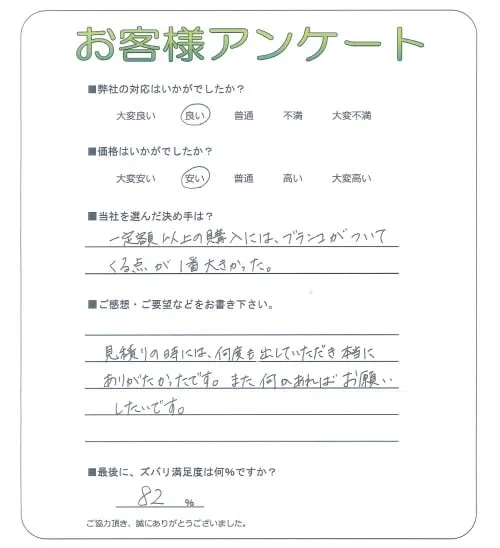 お客様アンケート
■弊社の対応はいかがでしたか？
大変良い 良い 普通 不満 大変不満
■価格はいかがでしたか？
大変安い 安い 普通 高い 大変高い
■当社を選んだ決め手は？
一定額以上の購入には、ブランコがついて
くる点が1番大きかった。
■ご感想・ご要望などをお書き下さい。
見積りの時には、何度も出していただき本当に
ありがたかったです。また何かあればお願い
したいです。
■最後に、ズバリ満足度は何％ですか？
82 %
ご協力頂き、誠にありがとうございました。